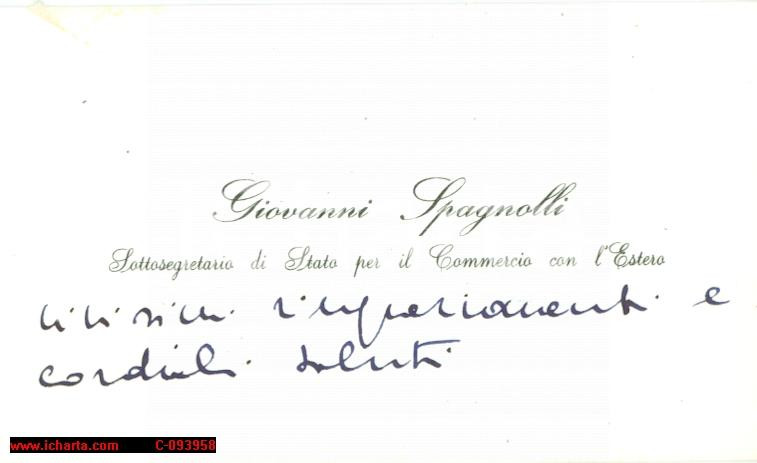 Giovanni Spagnolli
Sottosegretario di Stato per il Commercio con l'Estero
vivissimi ringraziamenti e
cordiali saluti
www.icharta.com C-093958